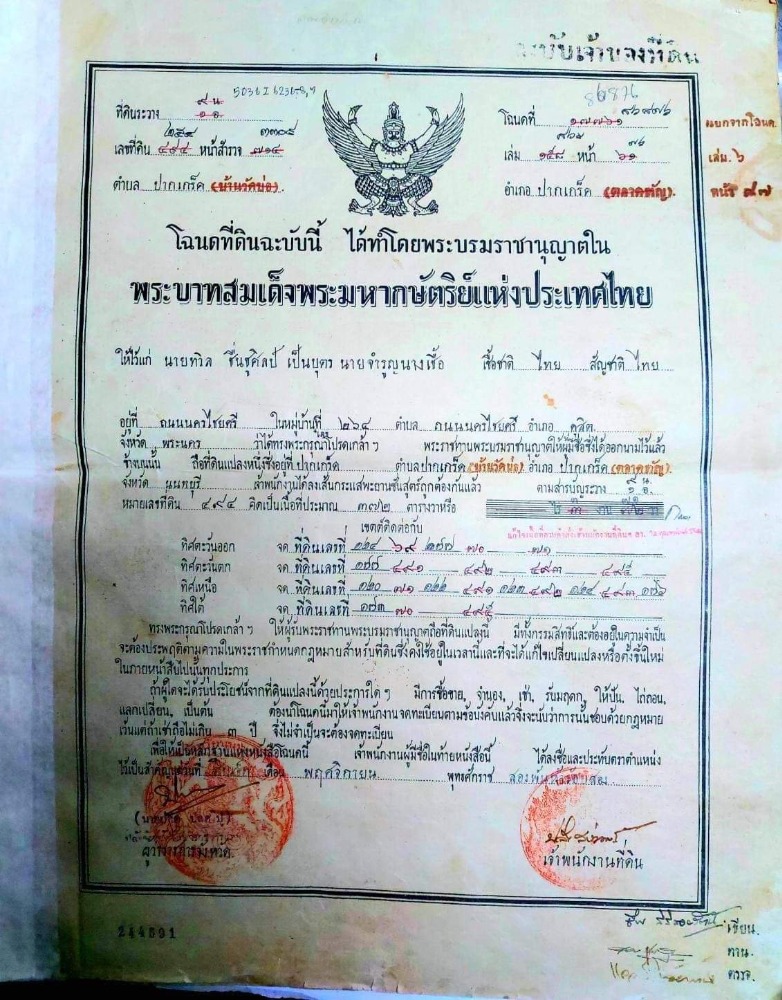 ฉะบับเจ้าของที่ดิน
5036 I 6231-8,9
86876
ที่ดินระวาง ๙ น ๑ อ
โฉนดที่ ๑๗๗๖๑ ๘๖๘๗๖
แยกจากโฉนด
เลขที่ดิน ๔๙๔ ๒๕๔ หน้าสำรวจ ๗๑๔ ๓๓๐๕
เล่ม ๑๕๘ หน้า ๖๑ ๗๖
เล่ม ๖
ตำบล ปากเกร็ด (บ้านวัดบ่อ)
อำเภอ ปากเกร็ด (ตลาดขวัญ)
๙๗
โฉนดที่ดินฉะบับนี้ ได้ทำโดยพระบรมราชานุญาตใน
พระบาทสมเด็จพระมหากษัตริย์แห่งประเทศไทย
ให้ไว้แก่ นายทวิล ชื่นชูศิลป์ เป็นบุตร นายจำรูญนางเชื้อ เชื้อชาติ ไทย สัญชาติ ไทย
อยู่ที่ ถนนนครไชยศรี ในหมู่บ้านที่ ๒๖๔ ตำบล ถนนนครไชยศรี อำเภอ ดุสิต
จังหวัด พระนคร ว่าได้ทรงพระกรุณาโปรดเกล้า ฯ พระราชทานพระบรมราชานุญาตให้ผู้มีชื่อซึ่งได้ออกนามไว้แล้ว
ข้างบนนั้น ถือที่ดินแปลงหนึ่งซึ่งอยู่ที่ ปากเกร็ด ตำบล ปากเกร็ด (บ้านวัดบ่อ) อำเภอ ปากเกร็ด (ตลาดขวัญ)
จังหวัด นนทบุรี เจ้าพนักงานได้ลงเส้นกระแสพะยานขึ้นสูตรถูกต้องกันแล้ว ตามสารบัญระวาง ๙ น ๑ อ
หมายเลขที่ดิน ๔๙๔ คิดเป็นเนื้อที่ประมาณ ๓๗๒ ตารางวาหรือ ไร่ ๓ งาน ๗๒ วา
เขตต์ติดต่อกับ
ทิศตะวันออก จด ที่ดินเลขที่ ๖๙ ๗๐ ๗๑
ทิศตะวันตก จด ที่ดินเลขที่ ๔๙๑ ๔๙๒ ๔๙๓ ๔๙๕
ทิศเหนือ จด ที่ดินเลขที่ ๗๑ ๔๙๑ ๔๙๒ ๔๙๓
ทิศใต้ จด ที่ดินเลขที่ ๗๐ ๔๙๕
ทรงพระกรุณาโปรดเกล้า ฯ ให้ผู้รับพระราชทานพระบรมราชานุญาตถือที่ดินแปลงนี้ มีทั้งกรรมสิทธิ์และต้องอยู่ในความจำเป็น
จะต้องประพฤติตามความในพระราชกำหนดกฎหมายสำหรับที่ดินซึ่งคงใช้อยู่ในเวลานี้และที่จะได้แก้ไขเปลี่ยนแปลงหรือตั้งขึ้นใหม่
ในภายหน้าสืบไปนั้นทุกประการ
ถ้าผู้ใดจะได้รับประโยชน์จากที่ดินแปลงนี้ด้วยประการใด ๆ มีการซื้อขาย, จำนอง, เช่า, รับมฤดก, ให้ปัน, ไถ่ถอน,
แลกเปลี่ยน, เป็นต้น ต้องนำโฉนดนี้มาให้เจ้าพนักงานจดทะเบียนตามข้อบังคับแล้วจึ่งจะนับว่าการนั้นชอบด้วยกฎหมาย
เว้นแต่ถ้าเช่าถือไม่เกิน ๓ ปี จึงไม่จำเป็นจะต้องจดทะเบียน
เพื่อให้เป็นหลักฐานแห่งหนังสือโฉนดนี้ เจ้าพนักงานผู้มีชื่อในท้ายหนังสือนี้ ได้ลงชื่อและประทับตราตำแหน่ง
ไว้เป็นสำคัญแต่วันที่ เดือน พฤศจิกายน พุทธศักราช
ผู้ว่าราชการจังหวัด
เจ้าพนักงานที่ดิน
244891
เขียน
ทาน
ตรวจ